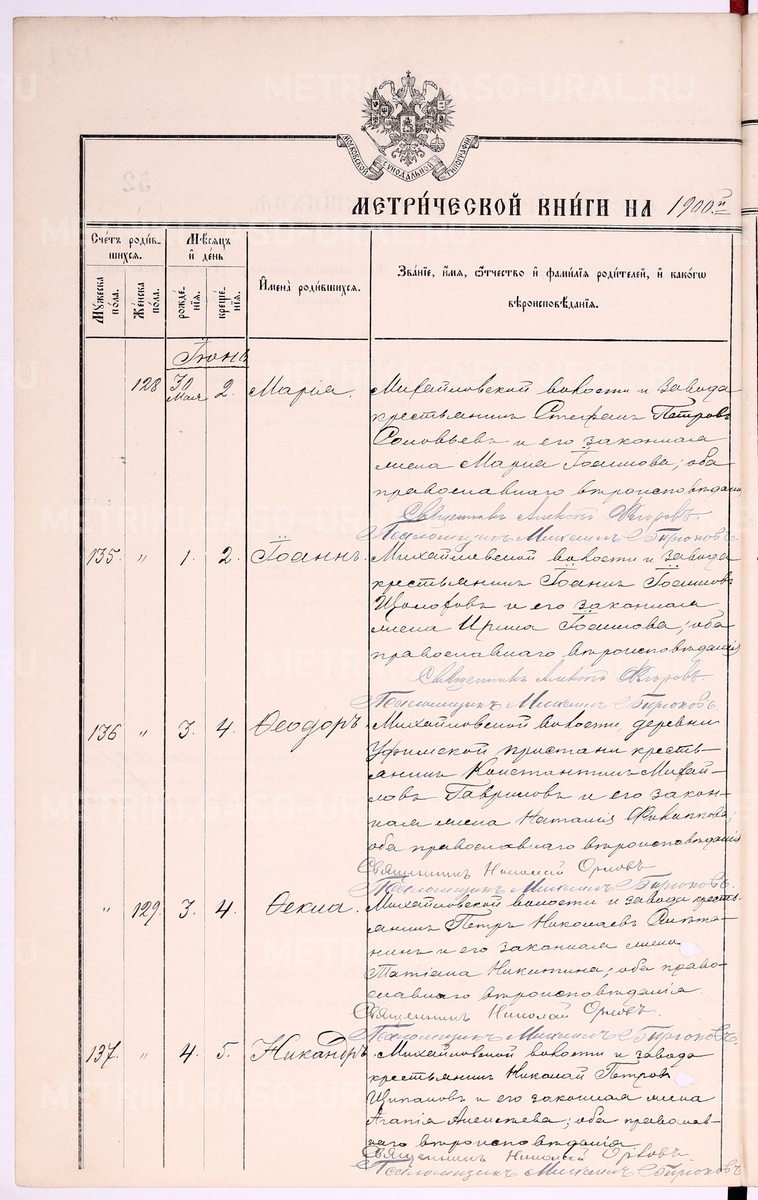 METRIKI.GASO-URAL.RU
МОСКОВСКОЙ СѴНОДАЛЬНОЙ ТИПОГРАФІИ
52
МЕТРИ́ЧЕСКОЙ КНИ́ГИ НА 1900 й
Сче́тъ роди́в-
шихся.
Мѣсяцъ
и҆ де́нь
Мꙋжеска
по́ла.
Же́нска
по́ла.
рожде́-
нїѧ.
креще́-
нїѧ.
И҆мена̀ роди́вшихсѧ.
Зва́нїе, и҆́мѧ, ѻ҆́тчество и҆ фами́лїѧ роди́телей, и҆ како́гѡ
вѣроисповѣ́данїѧ.
Іюнь
128 30 Мая 2. Марія.
Михайловской волости и завода
крестьянинъ Стефанъ Петровъ
Соловьевъ и его законная
жена Марія Іоаннова; оба
православнаго вѣроисповѣданія
Священникъ Флоровъ.
Псаломщикъ Михаилъ Бирюковъ.
135. " 1. 2. Іоаннъ.
Михайловской волости и завода
крестьянинъ Іоаннъ Іоанновъ
и его законная
жена Ирина Іоаннова; оба
православнаго вѣроисповѣданія
Священникъ Флоровъ
Псаломщикъ Михаилъ Бирюковъ.
136 " 3. 4. Ѳеодоръ.
Михайловской волости, деревни
Уфимской пристани кресть-
янинъ Константинъ Михай-
ловъ Гавриловъ и его закон-
ная жена Наталія Филиппова;
оба православнаго вѣроисповѣданія
Священникъ Николай Орловъ
Псаломщикъ Михаилъ Бирюковъ.
" 129. 3. 4. Ѳекла.
Михайловской волости и завода кресть-
янинъ Петръ Николаевъ
и его законная жена
Татіана Никитина; оба право-
славнаго вѣроисповѣданія.
Священникъ Николай Орловъ.
Псаломщикъ Михаилъ Бирюковъ.
137. " 4. 5. Никандръ
Михайловской волости и завода
крестьянинъ Николай Петровъ
Щипановъ и его законная жена
Агапія Алексѣева; оба православ-
наго вѣроисповѣданія
Священникъ Николай Орловъ.
Псаломщикъ Михаилъ Бирюковъ